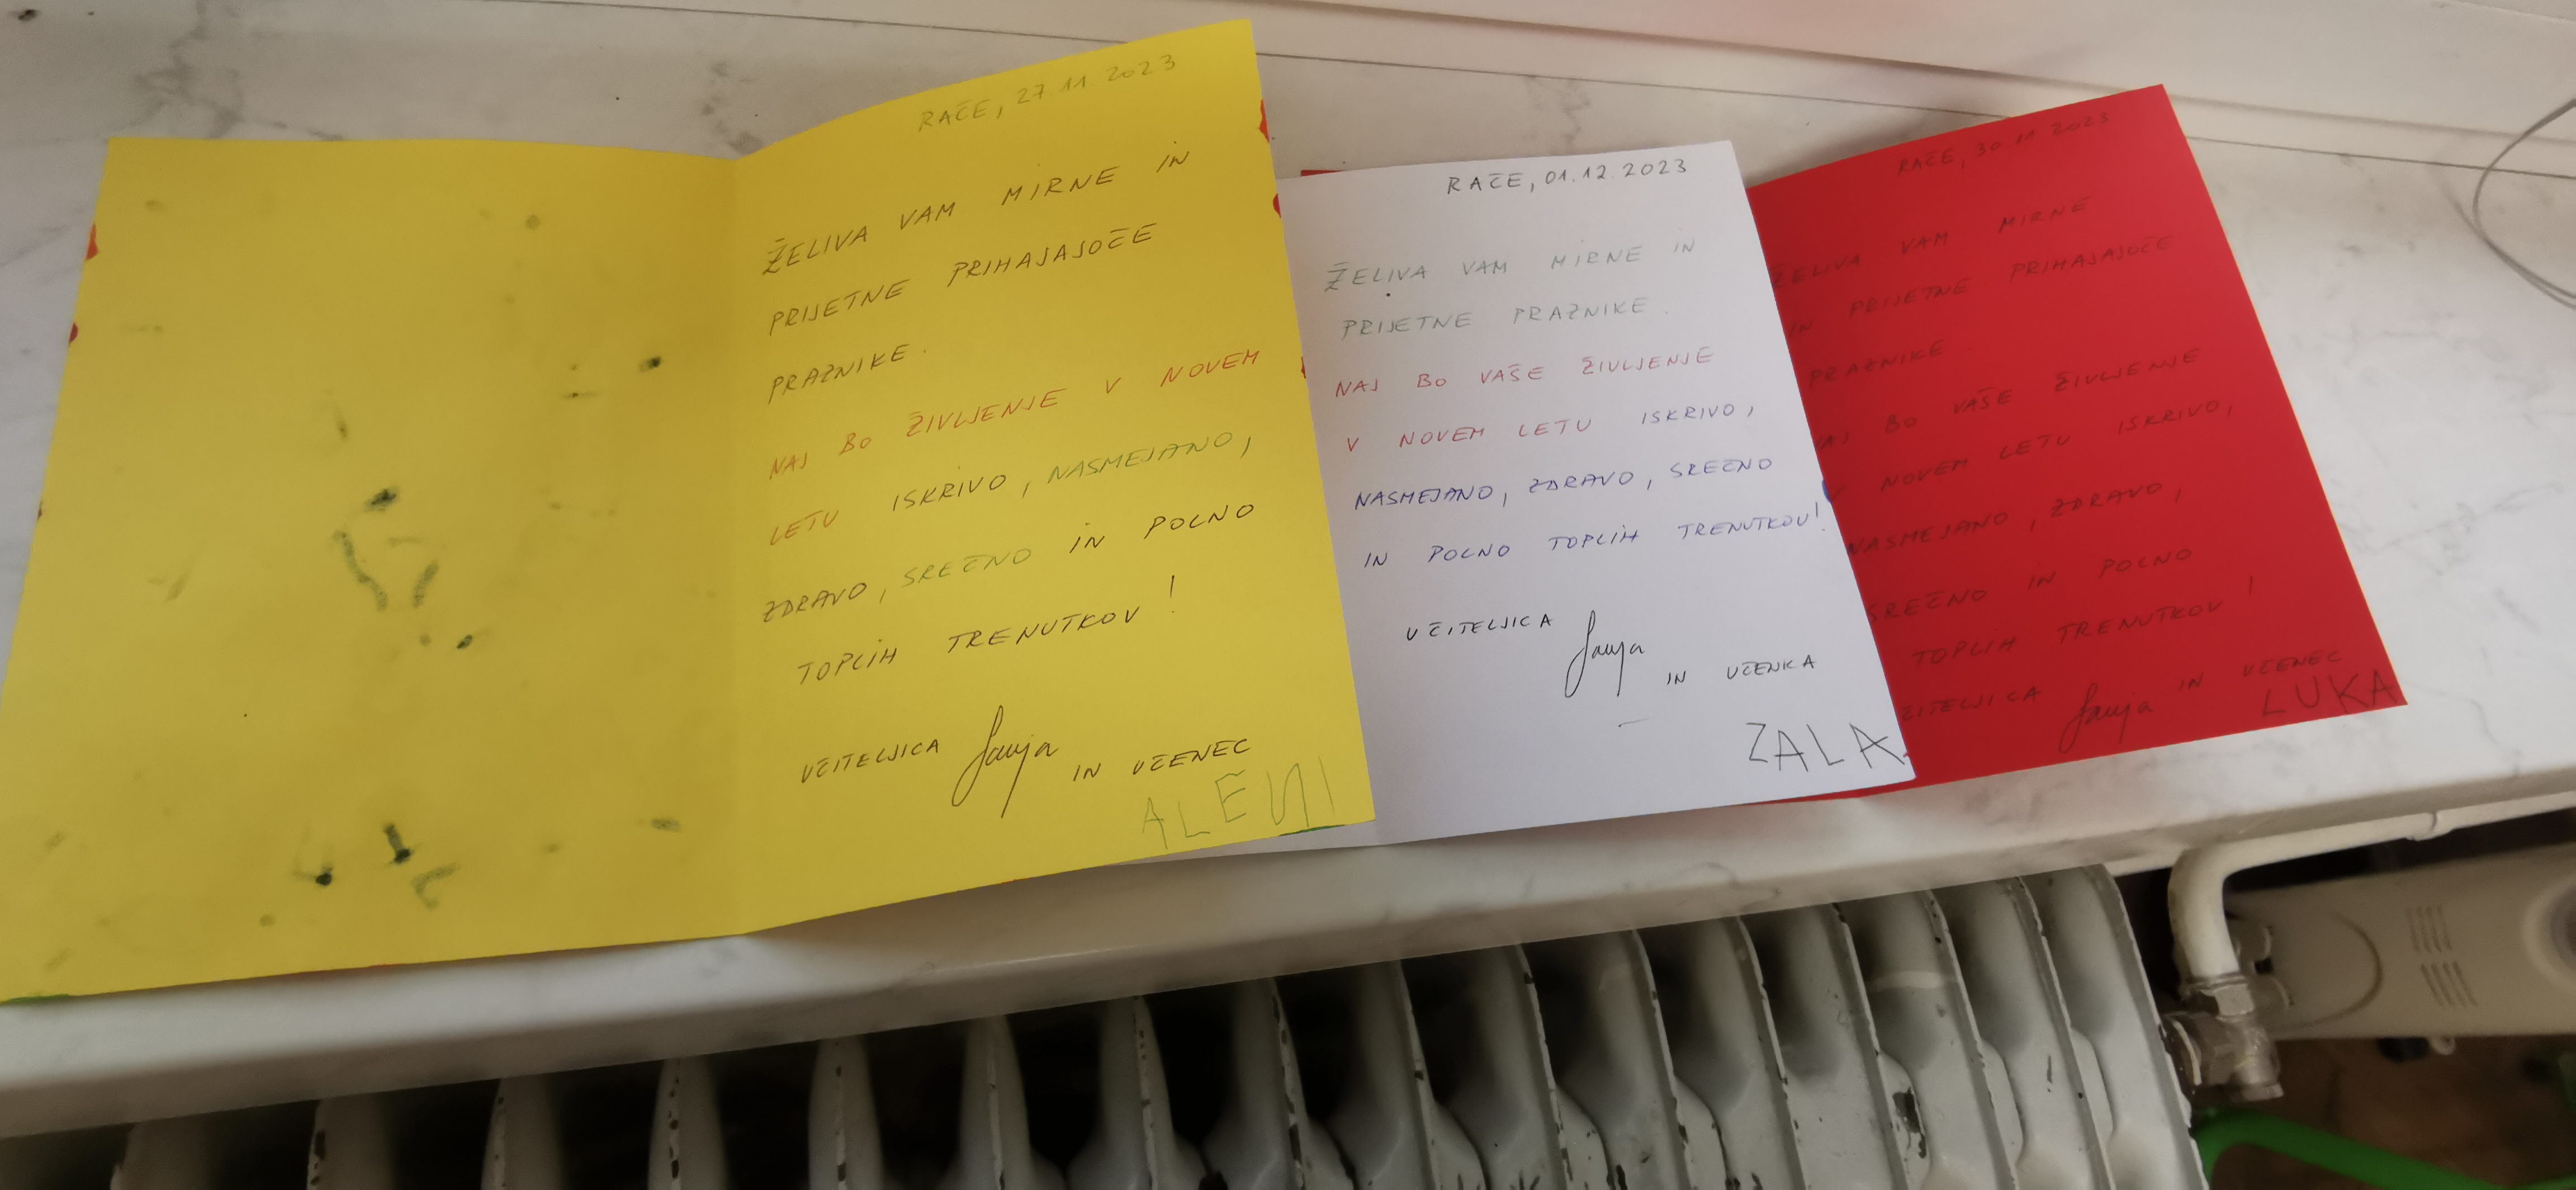 RAČE, 27.11.2023
ŽELIVA VAM MIRNE IN
PRIJETNE PRIHAJAJOČE
PRAZNIKE.
NAJ BO ŽIVLJENJE V NOVEM
LETU ISKRIVO, NASMEJANO,
ZDRAVO, SREČNO IN POLNO
TOPLIH TRENUTKOV!
UČITELJICA Sanja IN UČENEC
RAČE, 01.12.2023
ŽELIVA VAM MIRNE IN
PRIJETNE PRAZNIKE.
NAJ BO VAŠE ŽIVLJENJE
V NOVEM LETU ISKRIVO,
NASMEJANO, ZDRAVO, SREČNO
IN POLNO TOPLIH TRENUTKOV!
UČITELJICA Sanja IN UČENKA
ZALA
RAČE, 30.11.2023
ŽELIVA VAM MIRNE
IN PRIJETNE PRIHAJAJOČE
PRAZNIKE
NAJ BO VAŠE ŽIVLJENJE
V NOVEM LETU ISKRIVO,
NASMEJANO, ZDRAVO,
SREČNO IN POLNO
TOPLIH TRENUTKOV!
UČITELJICA Sanja IN UČENEC
LUKA